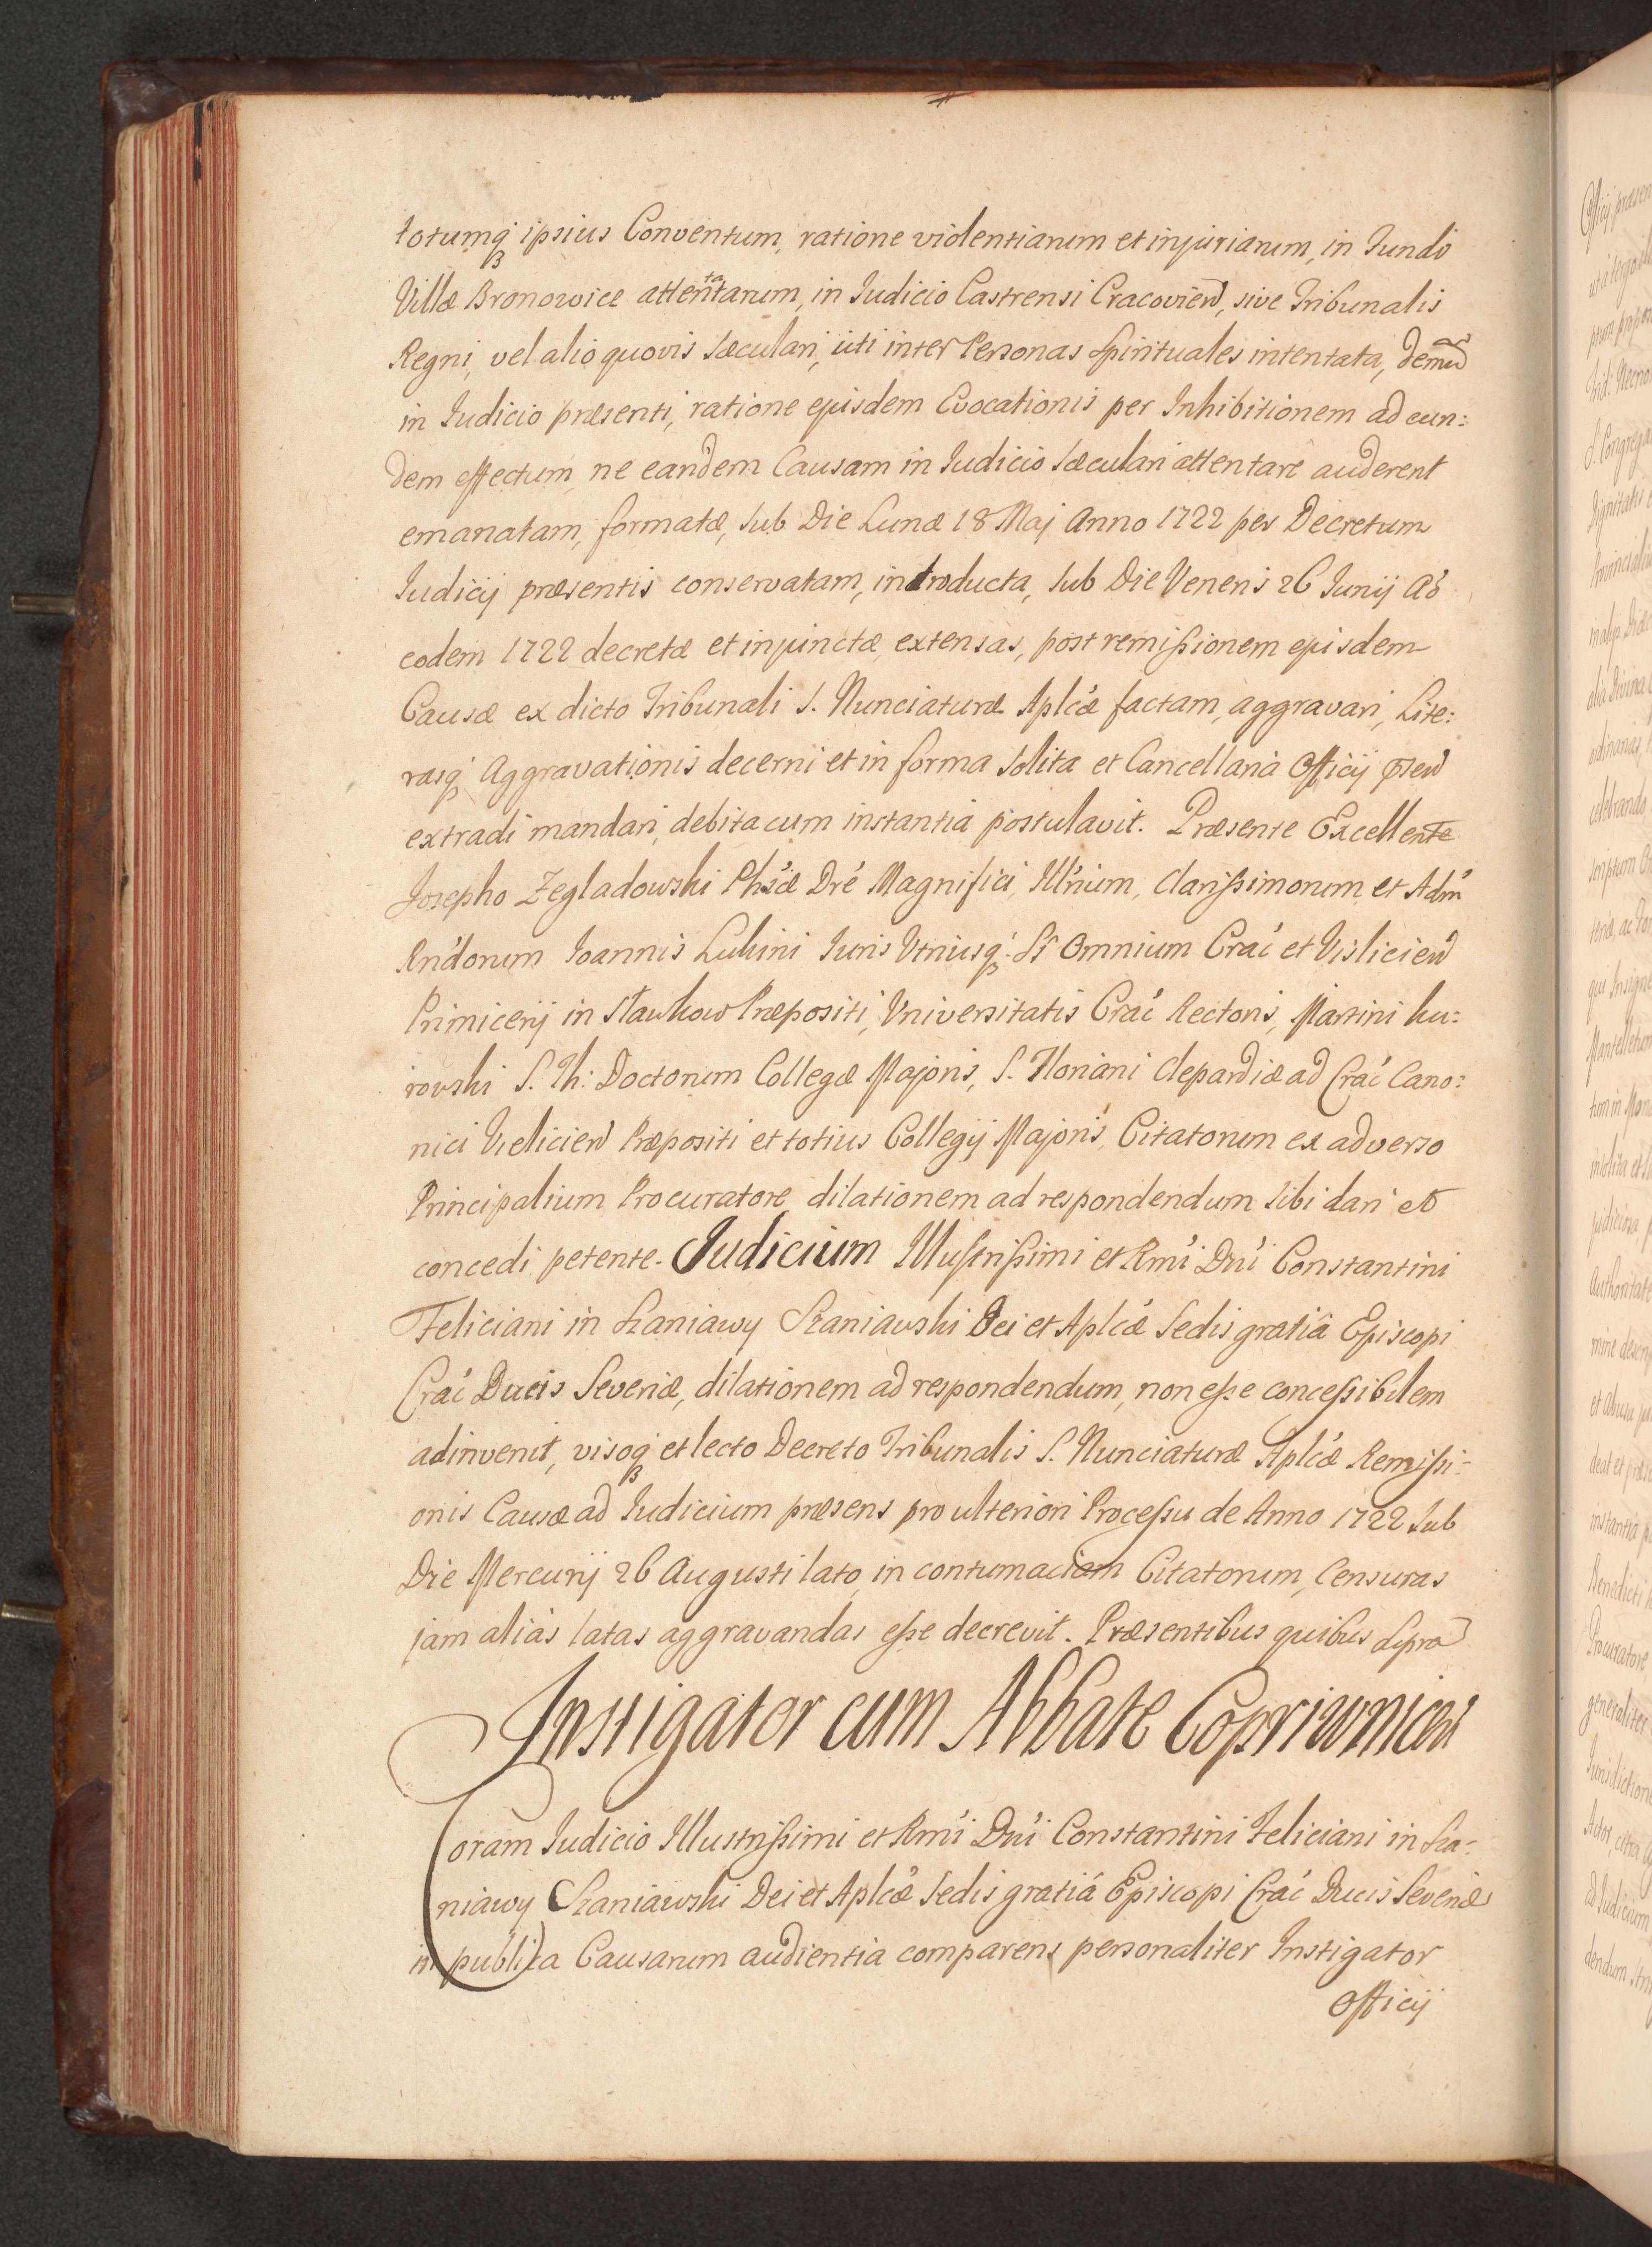 totumq́ꝫ ipsius Conventum, ratione violentiarum et injuriarum, in Fundo
Villæ Bronowice attentatarum, in Iudicio Castrensi Cracovień, sive Tribunalis
Regni, vel alio quovis sæculari, uti inter Personas Spirituales intentata, demũ
in Iudicio præsenti, ratione ejusdem Evocationis per Inhibitionem ad eun:
dem effectum, ne eandem Causam in Iudicio sæculari attentare auderent
emanatam, formatæ, sub Die Lunæ 18 Maj Anno 1722 per Decretum
Iudicij præsentis conservatam, introducta, sub Die Veneris 26 Junij Aō
eodem 1722 decretæ et injunctæ, extensas, post remißionem ejusdem
Causæ ex dicto Tribunali S. Nunciaturæ Aplćæ factam, aggravari, Lite:
rasq́ꝫ Aggravationis decerni et in forma solita et Cancellaria Officij pñti
extradi mandari, debita cum instantia postulavit. Præsente Excellente
Josepho Zegladowski Phśæ Dré Magnifici, Illrium, Clarißimorum et Adm̃
Rńdorum Ioannis Luhini Iuris Utriusq́ꝫ SS Omnium Crać et Vislicień
Primicerij in Slawkow Præpositi, Universitatis Crać Rectoris, Martini Ku:
rowski S. Th: Doctorum Collegæ Majoris, S. Floriani Clepardiæ ad Crać Cano:
nici Vielicień Præpositi et totius Collegij Majoris, Citatorum ex adverso
Principalium Procuratore, dilationem ad respondendum sibi dari et
concedi petente. Judicium Illustrißimi et Rmi Dńi Constantini
Feliciani in Szaniawy Szaniawski Dei et Aplćæ Sedis gratiâ Episcopi
Crać Ducis Severiæ, dilationem ad respondendum, non eße conceßibilem
adinvenit, visoq́ꝫ et lecto Decreto Tribunalis S. Nunciaturæ Aplćæ Remißi-
onis Causæ ad Iudicium præsens pro ulteriori Proceßu de Anno 1722 sub
Die Mercurij 26 Augusti lato, in contumaciam Citatorum, Censuras
jam aliàs latas aggravandas eße decrevit. Præsentibus quibus supra
Instigator cum Abbate Coprivnicen
Coram Iudicio Illustrißimi et Rmi Dńi Constantini Feliciani in Sza-
niawy Szaniawski Dei et Aplćæ Sedis gratiâ Episcopi Crać Ducis Severiæ
in publica Causarum audientia comparens personaliter Instigator
Officij